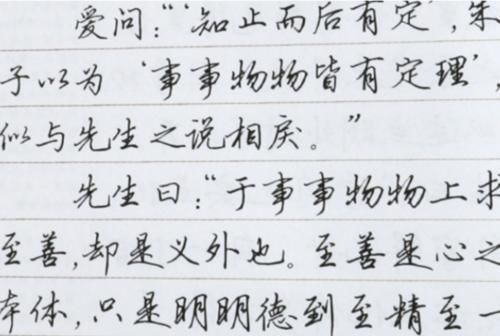 爱问："'知止而后有定',朱
子以为'事事物物皆有定理',
似与先生之说相戾。"
先生曰："于事事物物上求
至善,却是义外也。至善是心之
本体,只是明明德到至精至一